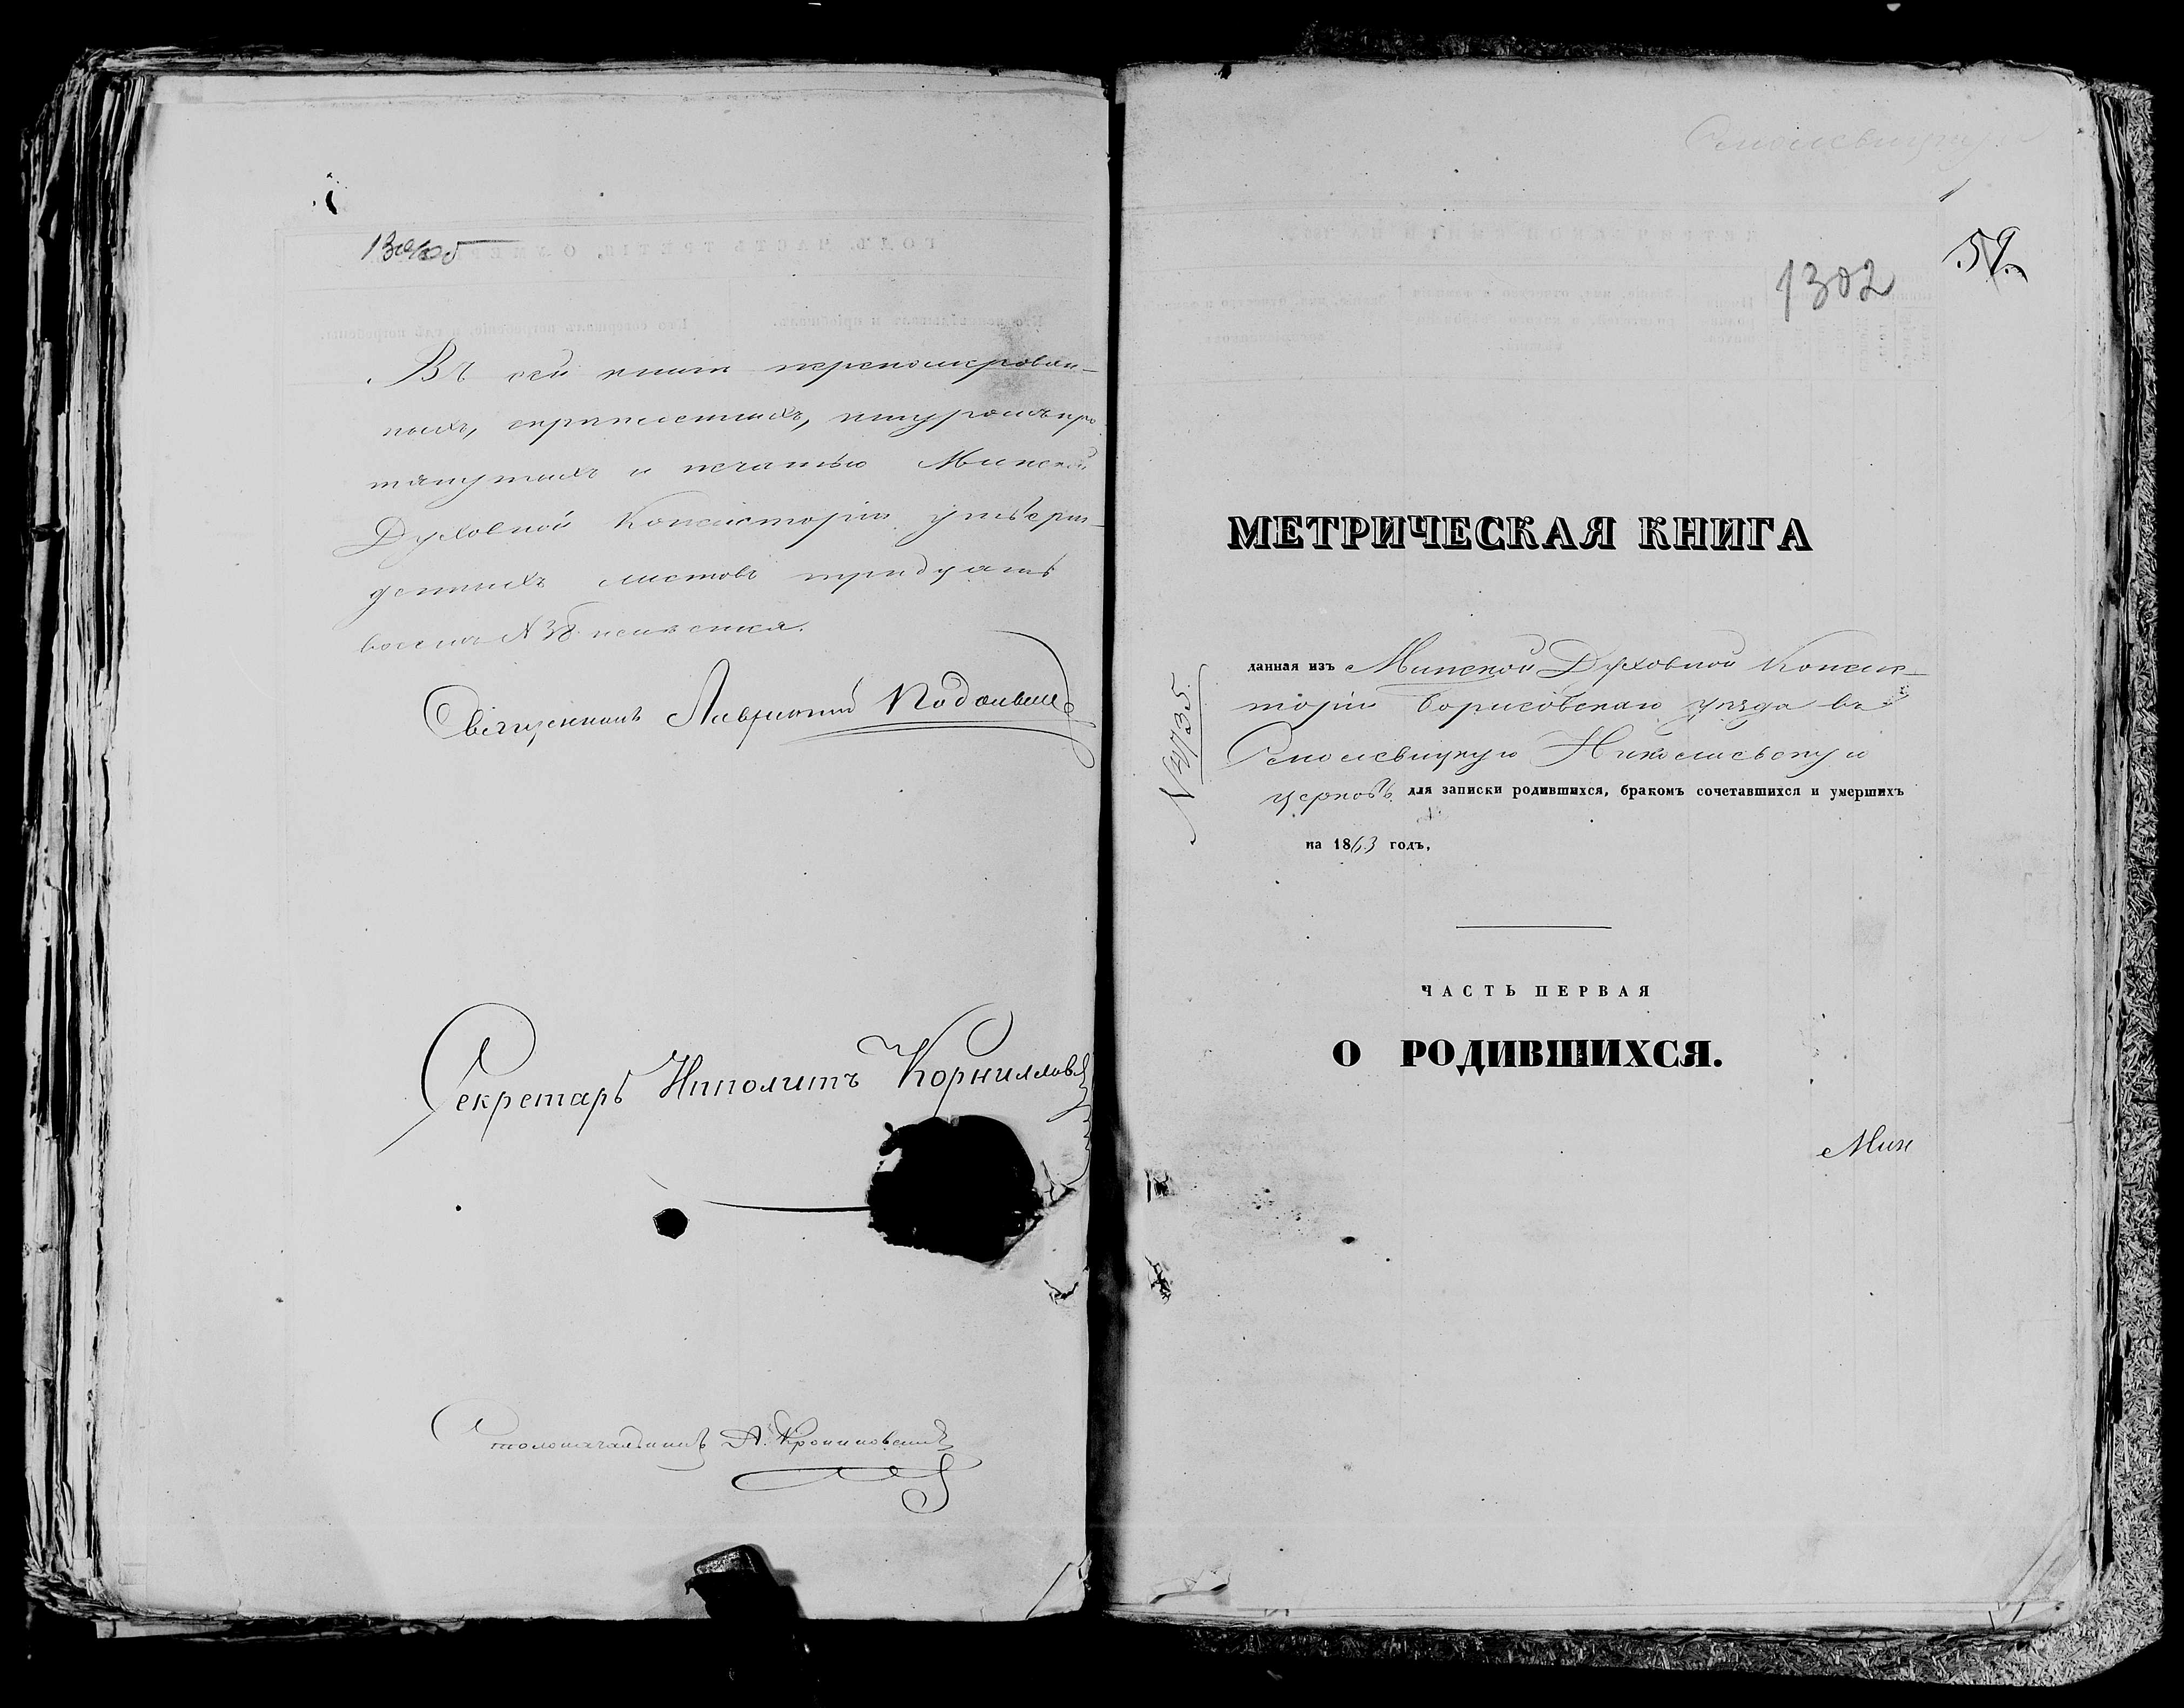 Въ сей книгѣ перенумерован-
ныхъ, скрѣпленныхъ, шнуромъ про
тянутыхъ и печатью Минской
Духовной Консисторіи утверж-
денныхъ листовъ тридцать
восемь N 38
Священникъ Лаврентій
Секретарь Ипполитъ Корниловъ
Столоначальникъ
1302
59.
МЕТРИЧЕСКАЯ КНИГА
данная изъ Минской Духовной Консис-
торіи Борисовскаго уѣзда въ
Смолевицкую Николаевскую
церковь для записки родившихся, бракомъ сочетавшихся и умершихъ
на 1863 годъ,
N 4735
ЧАСТЬ ПЕРВАЯ
О РОДИВШИХСЯ.
Мин